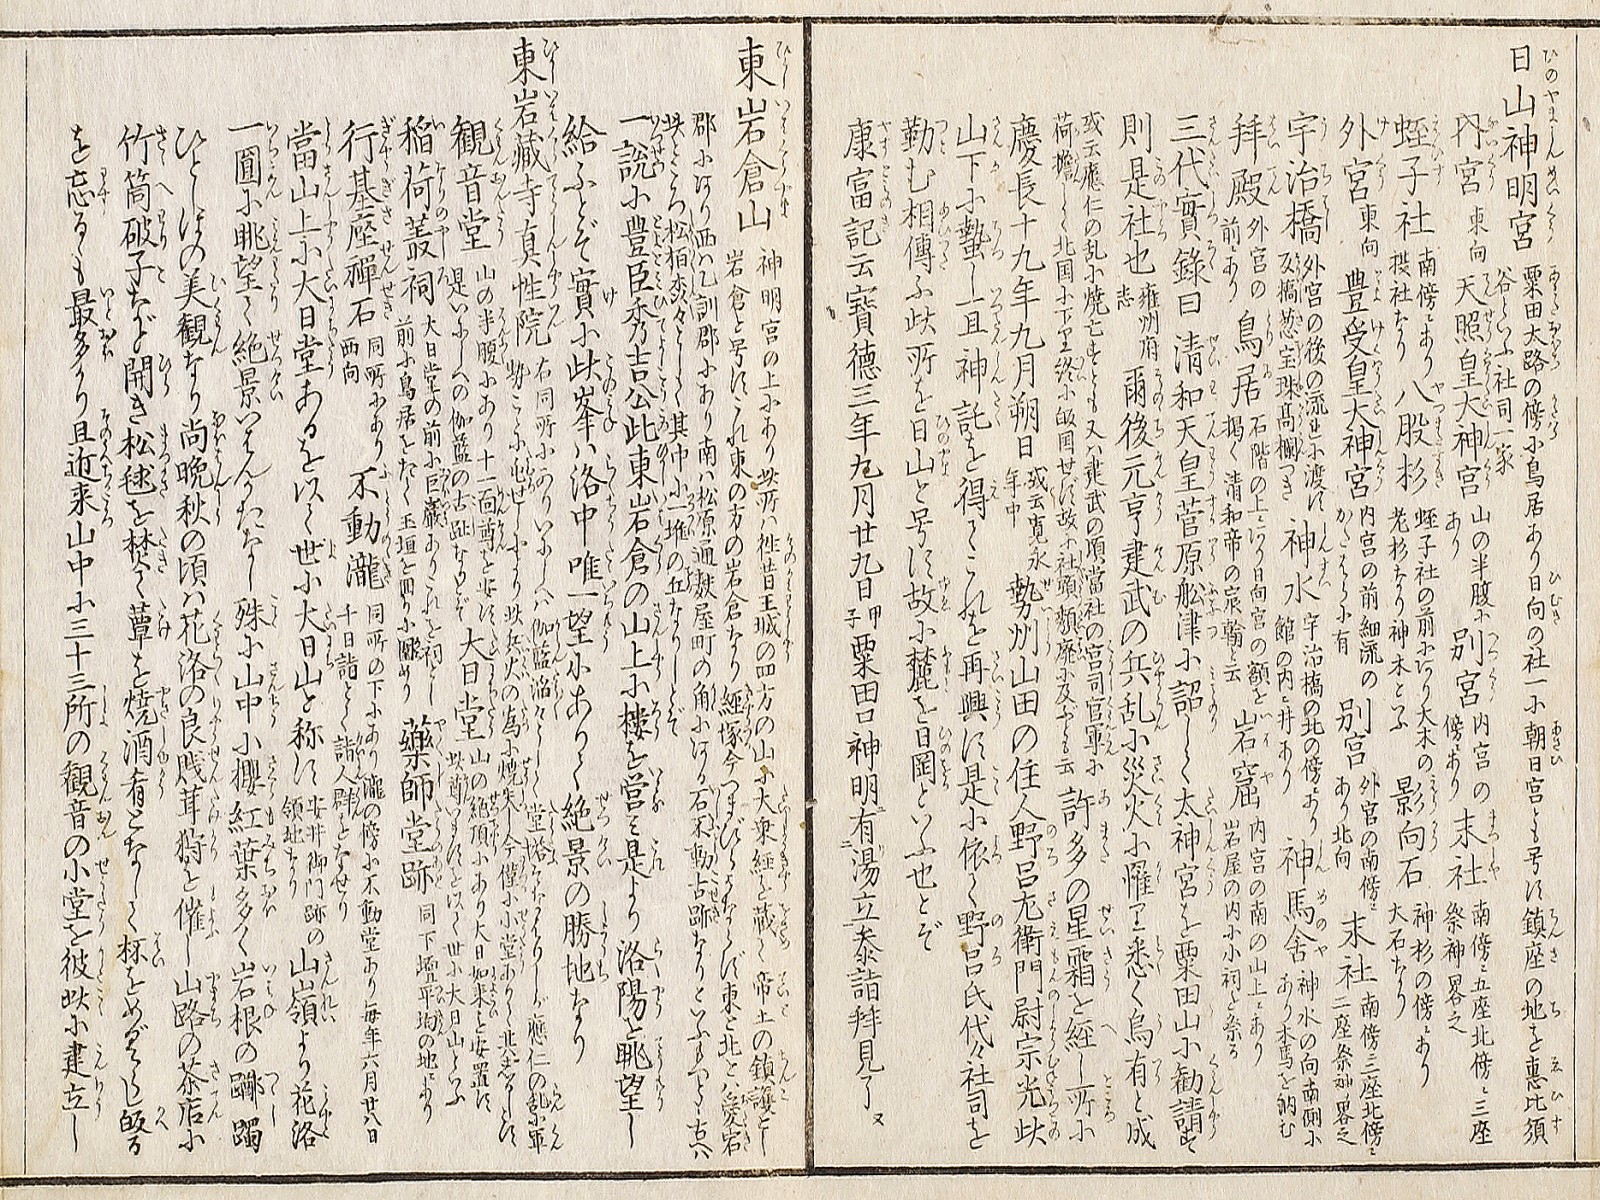 日山神明宮 粟田大路の傍に鳥居あり日向の社一に朝日宮とも号す鎮座の地を恵比須
谷といふ社司一家
内宮 東向 天照皇大神宮 山の半腹にあり 別宮 内宮の傍にあり 末社 南傍に五座北傍に三座祭神畧之
蛭子社 南傍にあり摂社なり 八股杉 蛭子社の前にあり大木の老杉なり神木とふ 影向石 神杉の傍にあり大石なり
外宮 東向 豊受皇太神宮 内宮の前細流のかたはらに有 別宮 外宮の南傍にあり北向 末社 南傍三座北傍に二座祭神畧之
宇治橋 外宮の後の流に渡す反橋葱宝珠高欄つき 神水 宇治橋の北の傍にあり館の内に井あり 神馬舎 神水の向南側にあり木馬を納む
拝殿 外宮の前にあり 鳥居 石階の上にあり日向宮の額を掲く清和帝の宸翰と云 岩窟 内宮の南の山上にあり岩屋の内に小祠を祭る
三代實録曰清和天皇菅原舩津に詔して太神宮を粟田山に勧請せし
則是社也 雍州府志 爾後元亨建武の兵乱に災火に罹り悉く烏有と成
或云應仁の乱に焼亡すとも又ハ建武の頃當社の宮司官軍に
荷擔して北国に下り終に皈国せず故に社頭頽廃に及ふとも云 許多の星霜を経し所に
慶長十九年九月朔日 或云寛永年中 勢州山田の住人野呂左衛門尉宗光此
山下に蟄し一且神託を得てこれを再興す是に依て野呂氏代々社司を
勤む相傳ふ此所を日山と号す故に麓を日岡といふ也とぞ
康富記云寳德三年九月廿九日甲子粟田口神明有湯立参詣拜見了 又
東岩倉山 神明宮の上にあり此所ハ往昔王城の四方の山に大乗経を蔵て帝土の鎮護とし
岩倉と号すこれ東の方の岩倉なり 経塚今つまびらかならず東と北とハ愛宕
郡にあり西ハ乙訓郡にあり南ハ松原通麩屋町の角にある石不動古跡なりといふもつとも古ハ
此ところ松柏森々として其中に一堆の丘なりしとぞ
一説に豊臣秀吉公此東岩倉の山上に楼を営み是より洛陽を眺望し
給ふとぞ實に此峯ハ洛中唯一望にありて絶景の勝地なり
東岩藏寺真性院 右同所にありいにしへハ伽藍滔々として堂塔そなハりしが應仁の乱に軍
勢こゝに屯せしにより此兵火の為に焼失し今僅に小堂ありて其志るしとす
観音堂 山の半腹にあり十一面尊を安す是いにしへの伽藍の古趾なりとぞ 大日堂 山の絶頂にあり大日如来を安置す此尊います以て世に大日山とふ
稲荷叢祠 大日堂の前に巨巌ありこれを祠とし前に鳥居をたて玉垣を囲り 藥師堂跡 同下壇平均の地にあり
行基座禪石 同所にあり西向 不動瀧 同所の下にあり瀧の傍に不動堂あり毎年六月廿八日千日詣とて詣人群をなせり
當山上に大日堂あるを以て世に大日山と称す 安井御門跡の領地なり 山嶺より花洛
一圓に眺望して絶景いはんかたなし殊に山中に櫻紅葉多く岩根の躑躅
ひとしほの美観なり尚晩秋の頃ハ花洛の良賎茸狩を催し山路の茶店に
竹筒破子など開き松毬を焚て蕈を焼酒肴となして杯をめぐらし皈る
を忘るゝも最多かり且近来山中に三十三所の観音の小堂を彼此に建立し